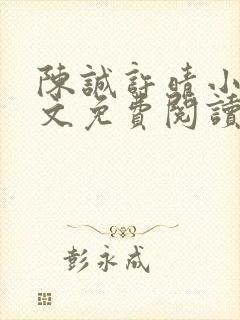 陳誠許晴小
文免費閱讀
彭永成